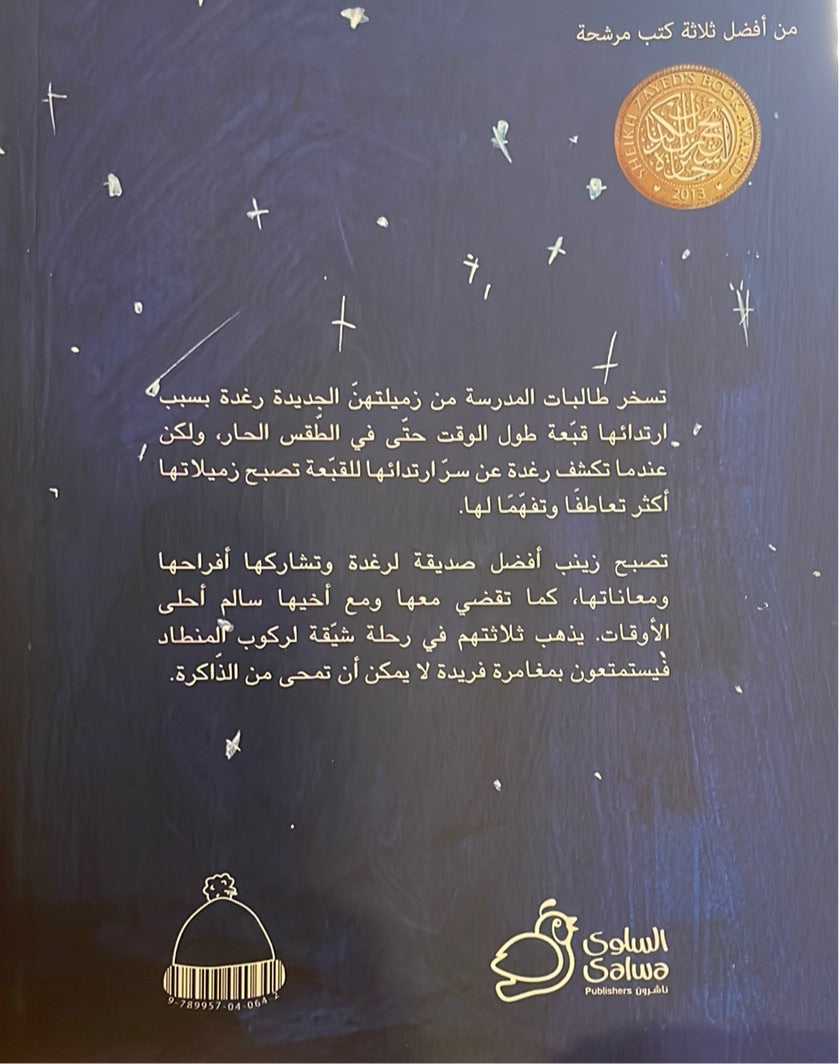 من أفضل ثلاثة كتب مرشحة
SHEIKH ZAYED'S BOOK AWARD
2013
تسخر طالبات المدرسة من زميلتهنّ الجديدة رغدة بسبب
ارتدائها قبّعة طول الوقت حتّى في الطّقس الحار، ولكن
عندما تكشف رغدة عن سرّ ارتدائها للقبّعة تصبح زميلاتها
أكثر تعاطفًا وتفهّمًا لها.
تصبح زينب أفضل صديقة لرغدة وتشاركها أفراحها
ومعاناتها، كما تقضي معها ومع أخيها سالم أحلى
الأوقات. يذهب ثلاثتهم في رحلة شيّقة لركوب المنطاد
فيستمتعون بمغامرة فريدة لا يمكن أن تمحى من الذّاكرة.
السلوى
Salwa
Publishers ناشرون
9-789957-04-064-2